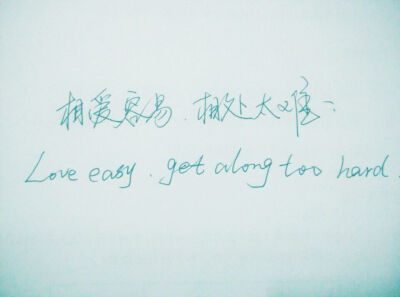 相爱容易.相处太难:
Love easy.get along too hard.